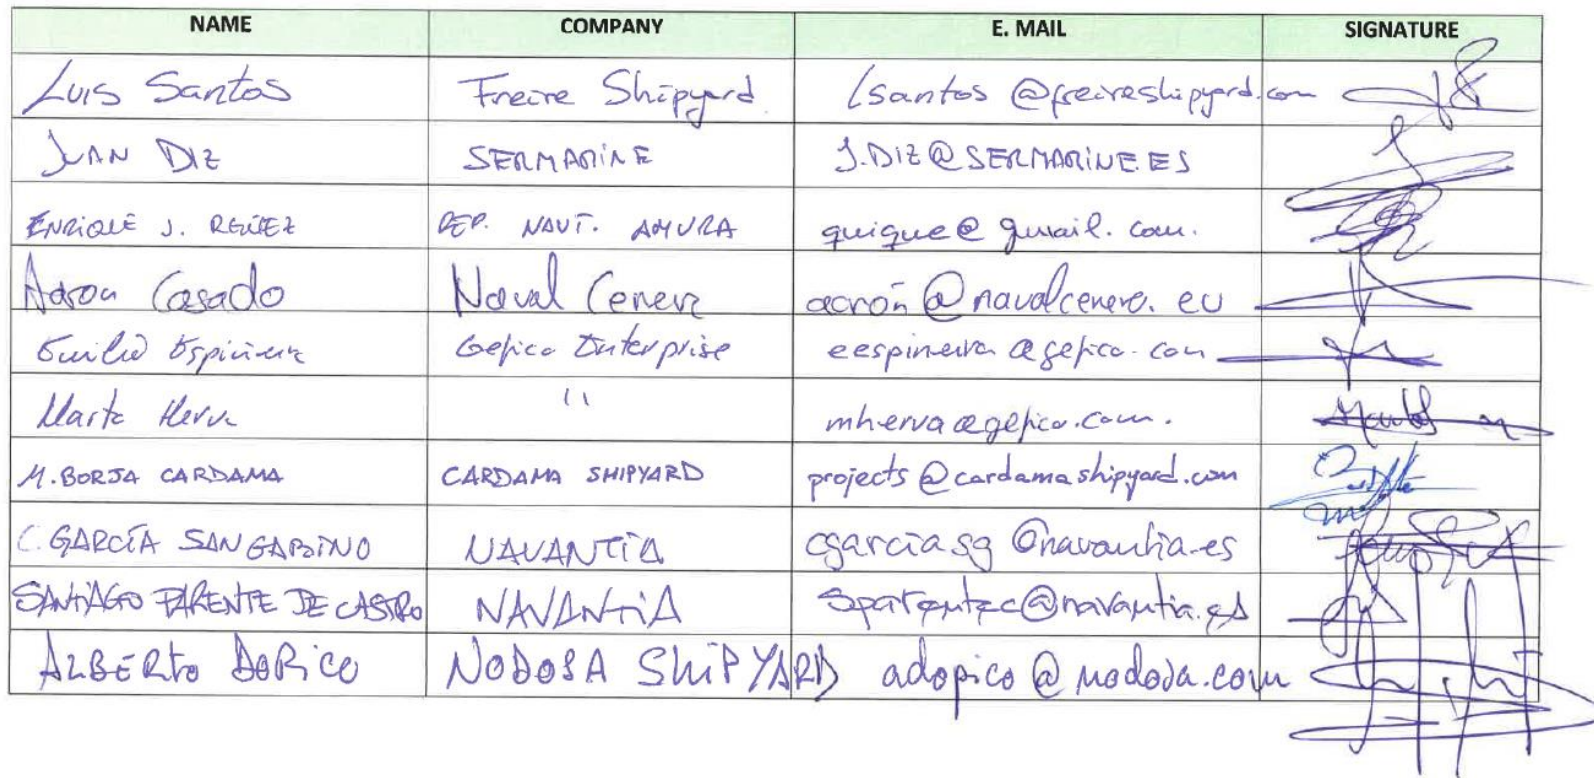 NAME COMPANY E. MAIL SIGNATURE
Luis Santos Freire Shipyard lsantos @freireshipyard.com
JUAN DIZ SERMARINE J.DIZ@SERMARINE.ES
ENRIQUE J. REP. NAUT. AMURA quique@gmail.com.
Aaron Casado Naval Cenere aaron@navalcenere.eu
Emilio Espiñeira Gefico Enterprise eespineira@gefico.com
Marta Herva " mherva@gefico.com.
M. BORJA CARDAMA CARDAMA SHIPYARD projects@cardamashipyard.com
C. GARCÍA SANGABINO NAVANTIA cgarciasg @navantia.es
SANTIAGO PARENTE DE CASTRO NAVANTIA sparentec@navantia.es
ALBERTO DOPICO NODOSA SHIPYARD adopico@nodosa.com